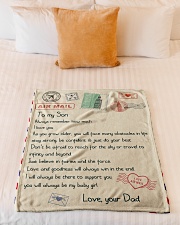 AIR MAIL
To my Son
Always remember how much
I love you
As you grow older, you will face many obstacles in life
stay strong, be confident & just do your best.
Don't be afraid to reach for the sky or travel to
infinity and beyond.
Just believe in fairies and the force.
Love and goodness will always win in the end.
I will always be there to support you
you will always be my baby girl.
Love, your Dad